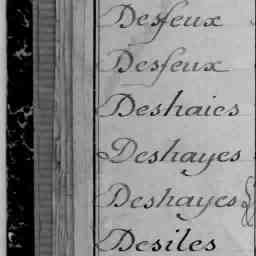 Desfeux
Desfeux
Deshaies
Deshayes
Deshayes
Desiles